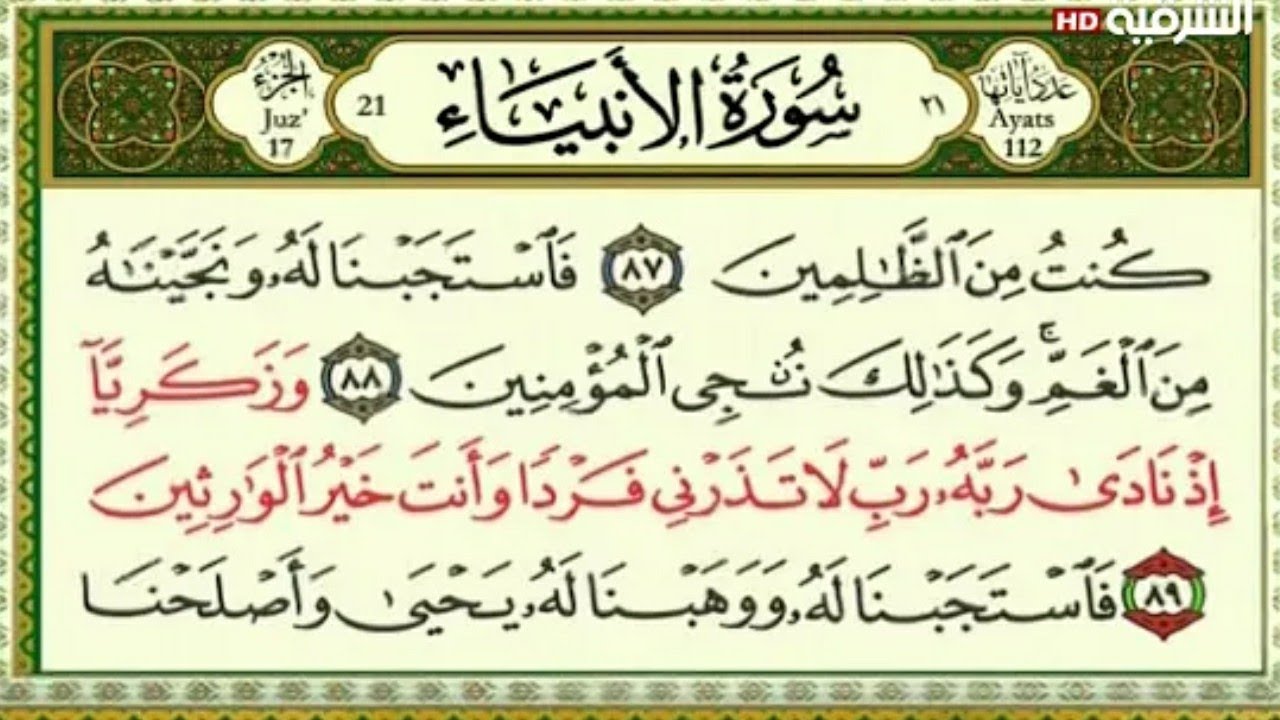 الشرقية HD
عدد آياتها
Ayats
112
٢١
سُورَةُ الأَنبِيَاءِ
21
الجزء
Juz'
17
كُنتُ مِنَ ٱلظَّٰلِمِينَ ٨٧ فَٱسْتَجَبْنَا لَهُۥ وَنَجَّيْنَٰهُ
مِنَ ٱلْغَمِّ ۚ وَكَذَٰلِكَ نُۨجِى ٱلْمُؤْمِنِينَ ٨٨ وَزَكَرِيَّآ
إِذْ نَادَىٰ رَبَّهُۥ رَبِّ لَا تَذَرْنِى فَرْدًا وَأَنتَ خَيْرُ ٱلْوَٰرِثِينَ
٨٩ فَٱسْتَجَبْنَا لَهُۥ وَوَهَبْنَا لَهُۥ يَحْيَىٰ وَأَصْلَحْنَا